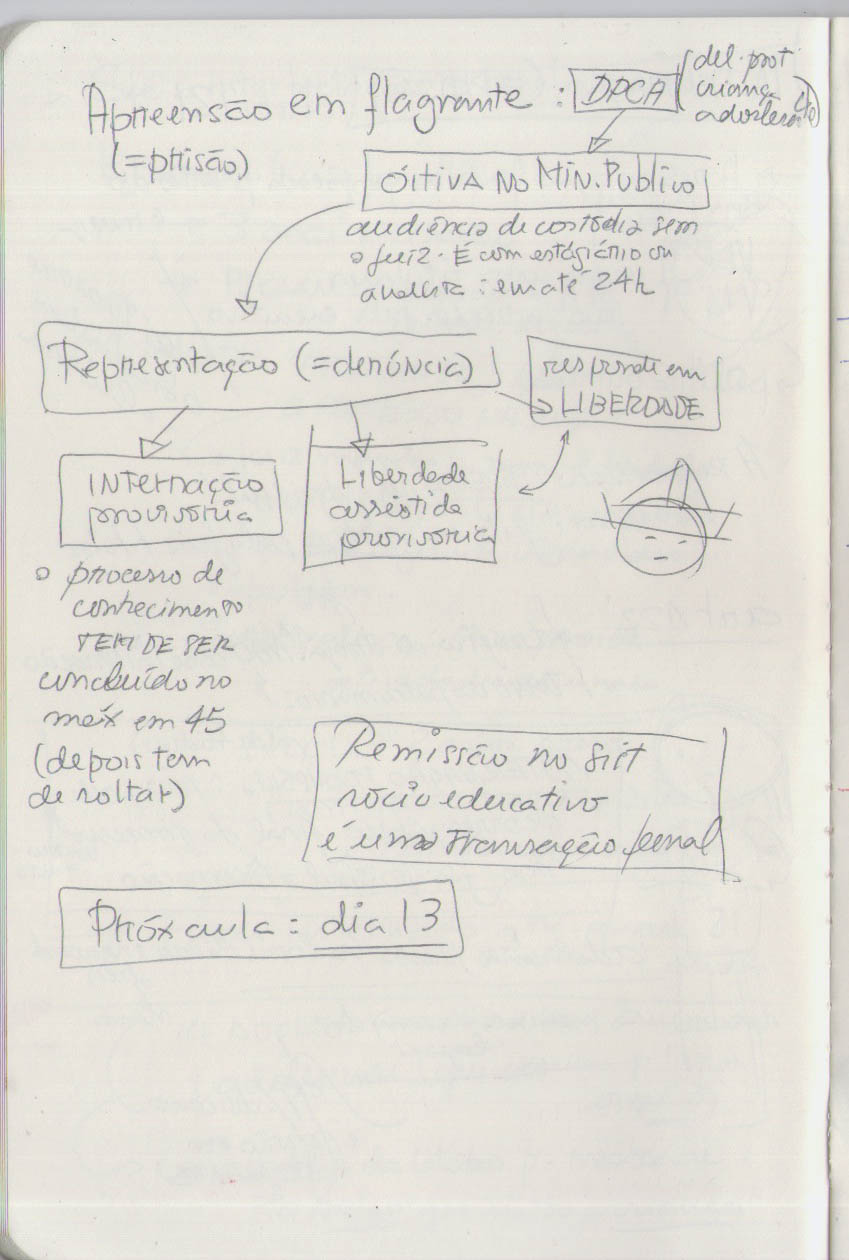 Apreensão em flagrante : DPCA (del. prot
criança
adolesc
(=prisão)
OITIVA NO MIN. PUBLICO
audiência de custódia sem
o juiz. É com estágiário ou
analista : em até 24h
Representação (=denúncia)
responde em
LIBERDADE
INternação
provisoria
Liberdade
assistida
provisoria
o processo de
conhecimento
TEM DE SER
concluído no
máx em 45
(depois tem
de soltar)
Remissão no Sist
socioeducativo
é uma Transação penal
Próx aula : dia 13